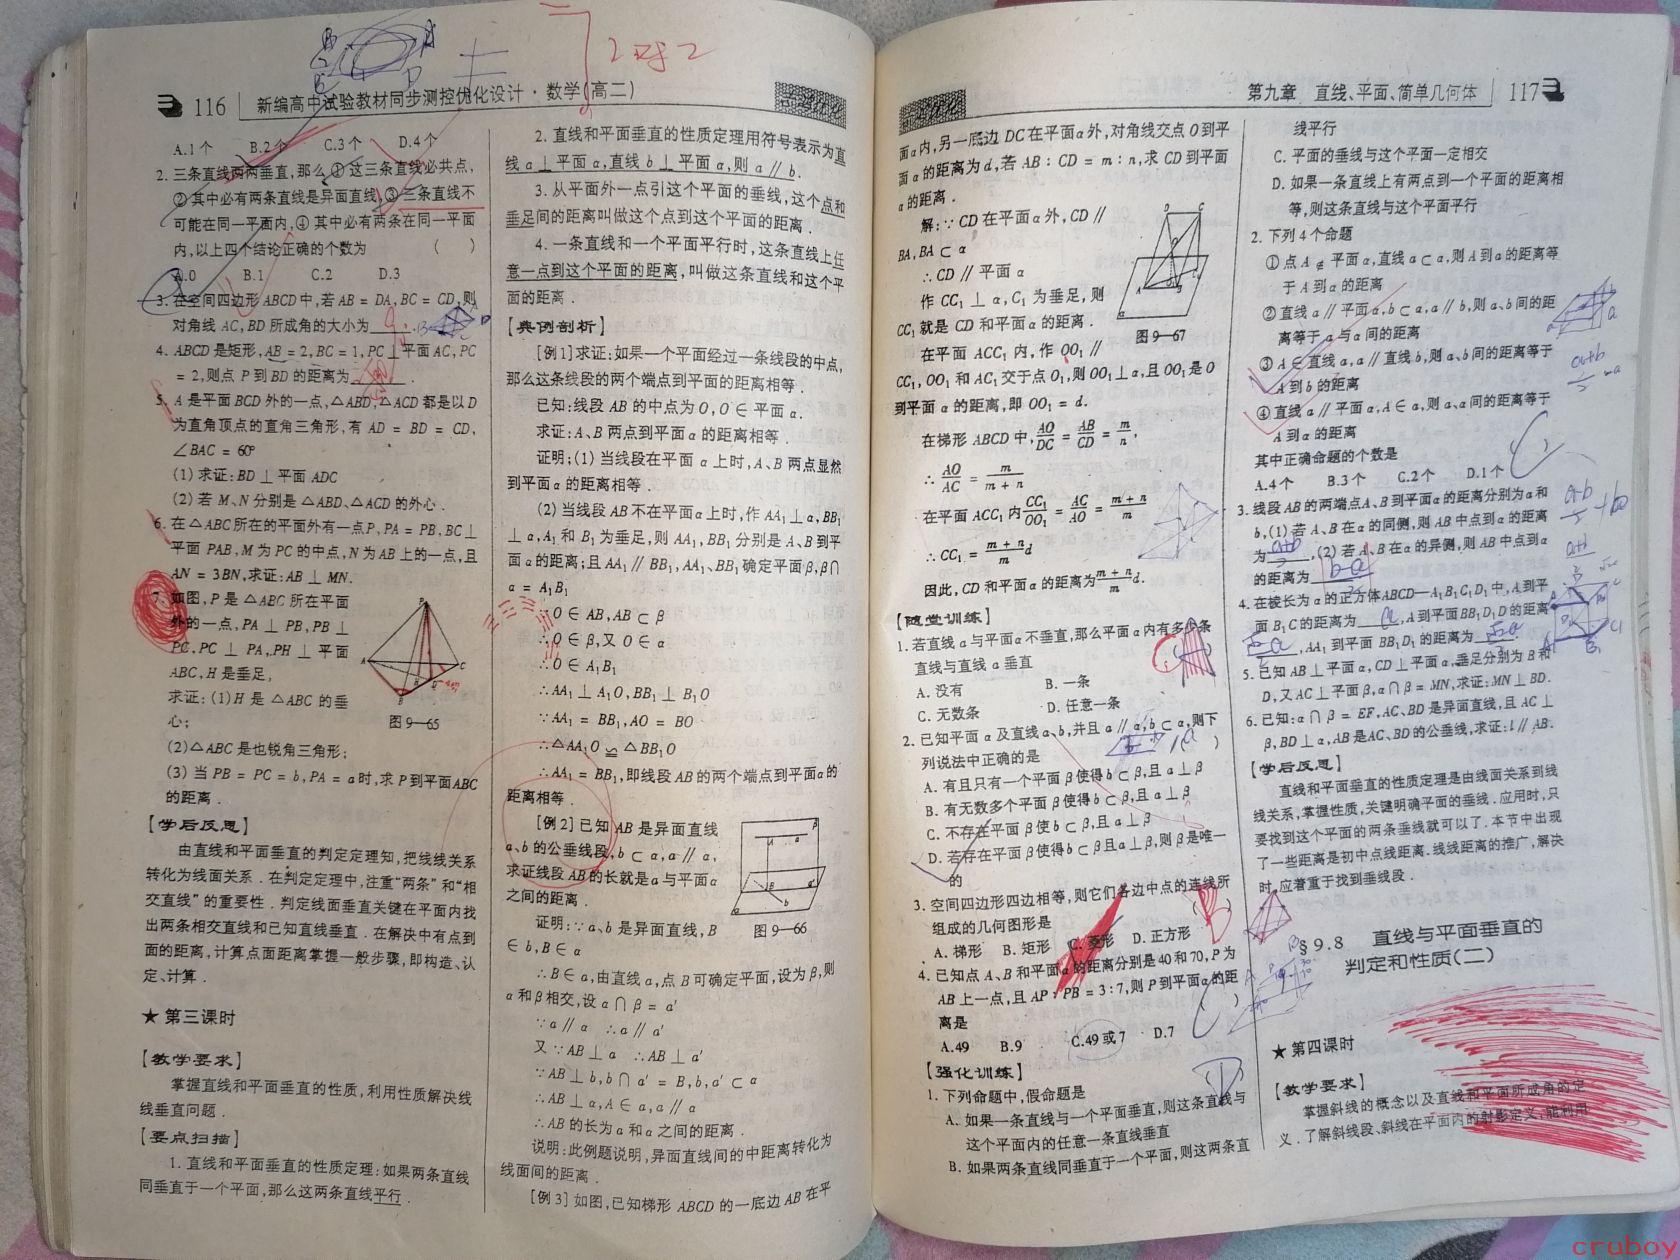 116 新编高中试验教材同步测控优化设计·数学(高二)
2 对 2
A.1个 B.2个 C.3个 D.4个
2. 三条直线两两垂直,那么①这三条直线必共点,
②其中必有两条直线是异面直线,③三条直线不
可能在同一平面内,④其中必有两条在同一平面
内,以上四个结论正确的个数为 ( )
A.0 B.1 C.2 D.3
3. 在空间四边形 ABCD 中,若 AB = DA, BC = CD,则
对角线 AC, BD 所成角的大小为
4. ABCD 是矩形, AB = 2, BC = 1, PC⊥平面 AC, PC
= 2,则点 P 到 BD 的距离为 .
5. A 是平面 BCD 外的一点,△ABD,△ACD 都是以 D
为直角顶点的直角三角形,有 AD = BD = CD,
∠BAC = 60°
(1) 求证: BD⊥平面 ADC
(2) 若 M、N 分别是△ABD、△ACD 的外心.
6. 在△ABC 所在的平面外有一点 P, PA = PB, BC⊥
平面 PAB, M 为 PC 的中点, N 为 AB 上的一点,且
AN = 3BN,求证: AB⊥MN.
7. 如图, P 是△ABC 所在平面
外的一点, PA⊥PB, PB⊥
PC, PC⊥PA, PH⊥平面
ABC, H 是垂足,
求证: (1) H 是△ABC 的垂
心;
图 9—65
(2)△ABC 是也锐角三角形;
(3) 当 PB = PC = b, PA = a 时,求 P 到平面 ABC
的距离.
【学后反思】
由直线和平面垂直的判定定理知,把线线关系
转化为线面关系.在判定定理中,注重“两条”和“相
交直线”的重要性.判定线面垂直关键在平面内找
出两条相交直线和已知直线垂直.在解决中有点到
面的距离,计算点面距离掌握一般步骤,即构造、认
定、计算.
★ 第三课时
【教学要求】
掌握直线和平面垂直的性质,利用性质解决线
线垂直问题.
【要点扫描】
1. 直线和平面垂直的性质定理:如果两条直线
同垂直于一个平面,那么这两条直线平行.
2. 直线和平面垂直的性质定理用符号表示为直
线 a⊥平面 α,直线 b⊥平面 α,则 a∥b.
3. 从平面外一点引这个平面的垂线,这个点和
垂足间的距离叫做这个点到这个平面的距离.
4. 一条直线和一个平面平行时,这条直线上任
意一点到这个平面的距离,叫做这条直线和这个平
面的距离.
【典例剖析】
[例1]求证:如果一个平面经过一条线段的中点,
那么这条线段的两个端点到平面的距离相等.
已知:线段 AB 的中点为 O, O∈平面 α.
求证: A、B 两点到平面 α 的距离相等.
证明: (1) 当线段在平面 α 上时, A、B 两点显然
到平面 α 的距离相等.
(2) 当线段 AB 不在平面 α 上时,作 AA₁⊥α, BB₁
⊥α, A₁ 和 B₁ 为垂足,则 AA₁, BB₁ 分别是 A、B 到平
面 α 的距离;且 AA₁∥BB₁, AA₁、BB₁ 确定平面 β, β∩
α = A₁B₁
∵O∈AB, AB⊂β
∴O∈β,又 O∈α
∴O∈A₁B₁
∴AA₁⊥A₁O, BB₁⊥B₁O
∵AA₁ = BB₁, AO = BO
∴△AA₁O≌△BB₁O
∴AA₁ = BB₁,即线段 AB 的两个端点到平面 α 的
距离相等.
[例2]已知 AB 是异面直线
a、b 的公垂线段, b⊂α, a∥α,
求证线段 AB 的长就是 a 与平面 α
之间的距离.
图 9—66
证明:∵a、b 是异面直线, B
∈b, B∈α
∴B∈α,由直线 a,点 B 可确定平面,设为 β,则
α 和 β 相交,设 α∩β = a′
∵a∥α ∴a∥a′
又∵AB⊥a ∴AB⊥a′
∵AB⊥b, b∩a′ = B, b, a′⊂α
∴AB⊥α, A∈a, a∥α
∴AB 的长为 a 和 α 之间的距离.
说明:此例题说明,异面直线间的中距离转化为
线面间的距离.
[例3]如图,已知梯形 ABCD 的一底边 AB 在平
第九章 直线、平面、简单几何体 117
面 α 内,另一底边 DC 在平面 α 外,对角线交点 O 到平
面 α 的距离为 d,若 AB : CD = m : n,求 CD 到平面
α 的距离.
解:∵CD 在平面 α 外, CD∥
BA, BA⊂α
∴CD∥平面 α
作 CC₁⊥α, C₁ 为垂足,则
CC₁ 就是 CD 和平面 α 的距离.
图 9—67
在平面 ACC₁ 内,作 OO₁∥
CC₁, OO₁ 和 AC₁ 交于点 O₁,则 OO₁⊥α,且 OO₁ 是 O
到平面 α 的距离,即 OO₁ = d.
在梯形 ABCD 中, AO/DC = AB/CD = m/n,
∴ AO/AC = m/(m + n)
在平面 ACC₁ 内 CC₁/OO₁ = AC/AO = (m + n)/m
∴CC₁ = (m + n)/m d
因此, CD 和平面 α 的距离为 (m + n)/m d.
【随堂训练】
1. 若直线 a 与平面 α 不垂直,那么平面 α 内有多少条
直线与直线 a 垂直
A. 没有 B. 一条
C. 无数条 D. 任意一条
2. 已知平面 α 及直线 a、b,并且 a∥α, b⊂α,则下
列说法中正确的是 ( )
A. 有且只有一个平面 β 使得 b⊂β,且 a⊥β
B. 有无数多个平面 β 使得 b⊂β,且 a⊥β
C. 不存在平面 β 使 b⊂β,且 a⊥β
D. 若存在平面 β 使得 b⊂β 且 a⊥β,则 β 是唯一
的
3. 空间四边形四边相等,则它们各边中点的连线所
组成的几何图形是
A. 梯形 B. 矩形 C. 菱形 D. 正方形
4. 已知点 A、B 和平面 α 的距离分别是 40 和 70, P 为
AB 上一点,且 AP : PB = 3:7,则 P 到平面 α 的距
离是
A.49 B.9 C.49 或 7 D.7
【强化训练】
1. 下列命题中,假命题是
A. 如果一条直线与一个平面垂直,则这条直线与
这个平面内的任意一条直线垂直
B. 如果两条直线同垂直于一个平面,则这两条直
线平行
C. 平面的垂线与这个平面一定相交
D. 如果一条直线上有两点到一个平面的距离相
等,则这条直线与这个平面平行
2. 下列 4 个命题
①点 A∉平面 α,直线 a⊂α,则 A 到 a 的距离等
于 A 到 α 的距离
②直线 a∥平面 α, b⊂α, a∥b,则 a、b 间的距
离等于 a 与 α 间的距离
③ A∈直线 a, a∥直线 b,则 a、b 间的距离等于
A 到 b 的距离
④直线 a∥平面 α, A∈a,则 a、α 间的距离等于
A 到 α 的距离
其中正确命题的个数是
A.4个 B.3个 C.2个 D.1个
3. 线段 AB 的两端点 A、B 到平面 α 的距离分别为 a 和
b, (1) 若 A、B 在 α 的同侧,则 AB 中点到 α 的距离
为 a+b/2 , (2) 若 A、B 在 α 的异侧,则 AB 中点到 α
的距离为 b-a/2
4. 在棱长为 a 的正方体 ABCD—A₁B₁C₁D₁ 中, A 到平
面 B₁C 的距离为 a , A 到平面 BB₁D₁D 的距离
, AA₁ 到平面 BB₁D₁ 的距离为 .
5. 已知 AB⊥平面 α, CD⊥平面 α,垂足分别为 B 和
D,又 AC⊥平面 β, α∩β = MN,求证: MN⊥BD.
6. 已知: α∩β = EF, AC、BD 是异面直线,且 AC⊥
β, BD⊥α, AB 是 AC、BD 的公垂线,求证: l∥AB.
【学后反思】
直线和平面垂直的性质定理是由线面关系到线
线关系,掌握性质,关键明确平面的垂线.应用时,只
要找到这个平面的两条垂线就可以了.本节中出现
了一些距离是初中点线距离.线线距离的推广,解决
时,应着重于找到垂线段.
§9.8 直线与平面垂直的
判定和性质(二)
★ 第四课时
【教学要求】
掌握斜线的概念以及直线和平面所成角的定
义.了解斜线段、斜线在平面内的射影定义,能利用
cruboy